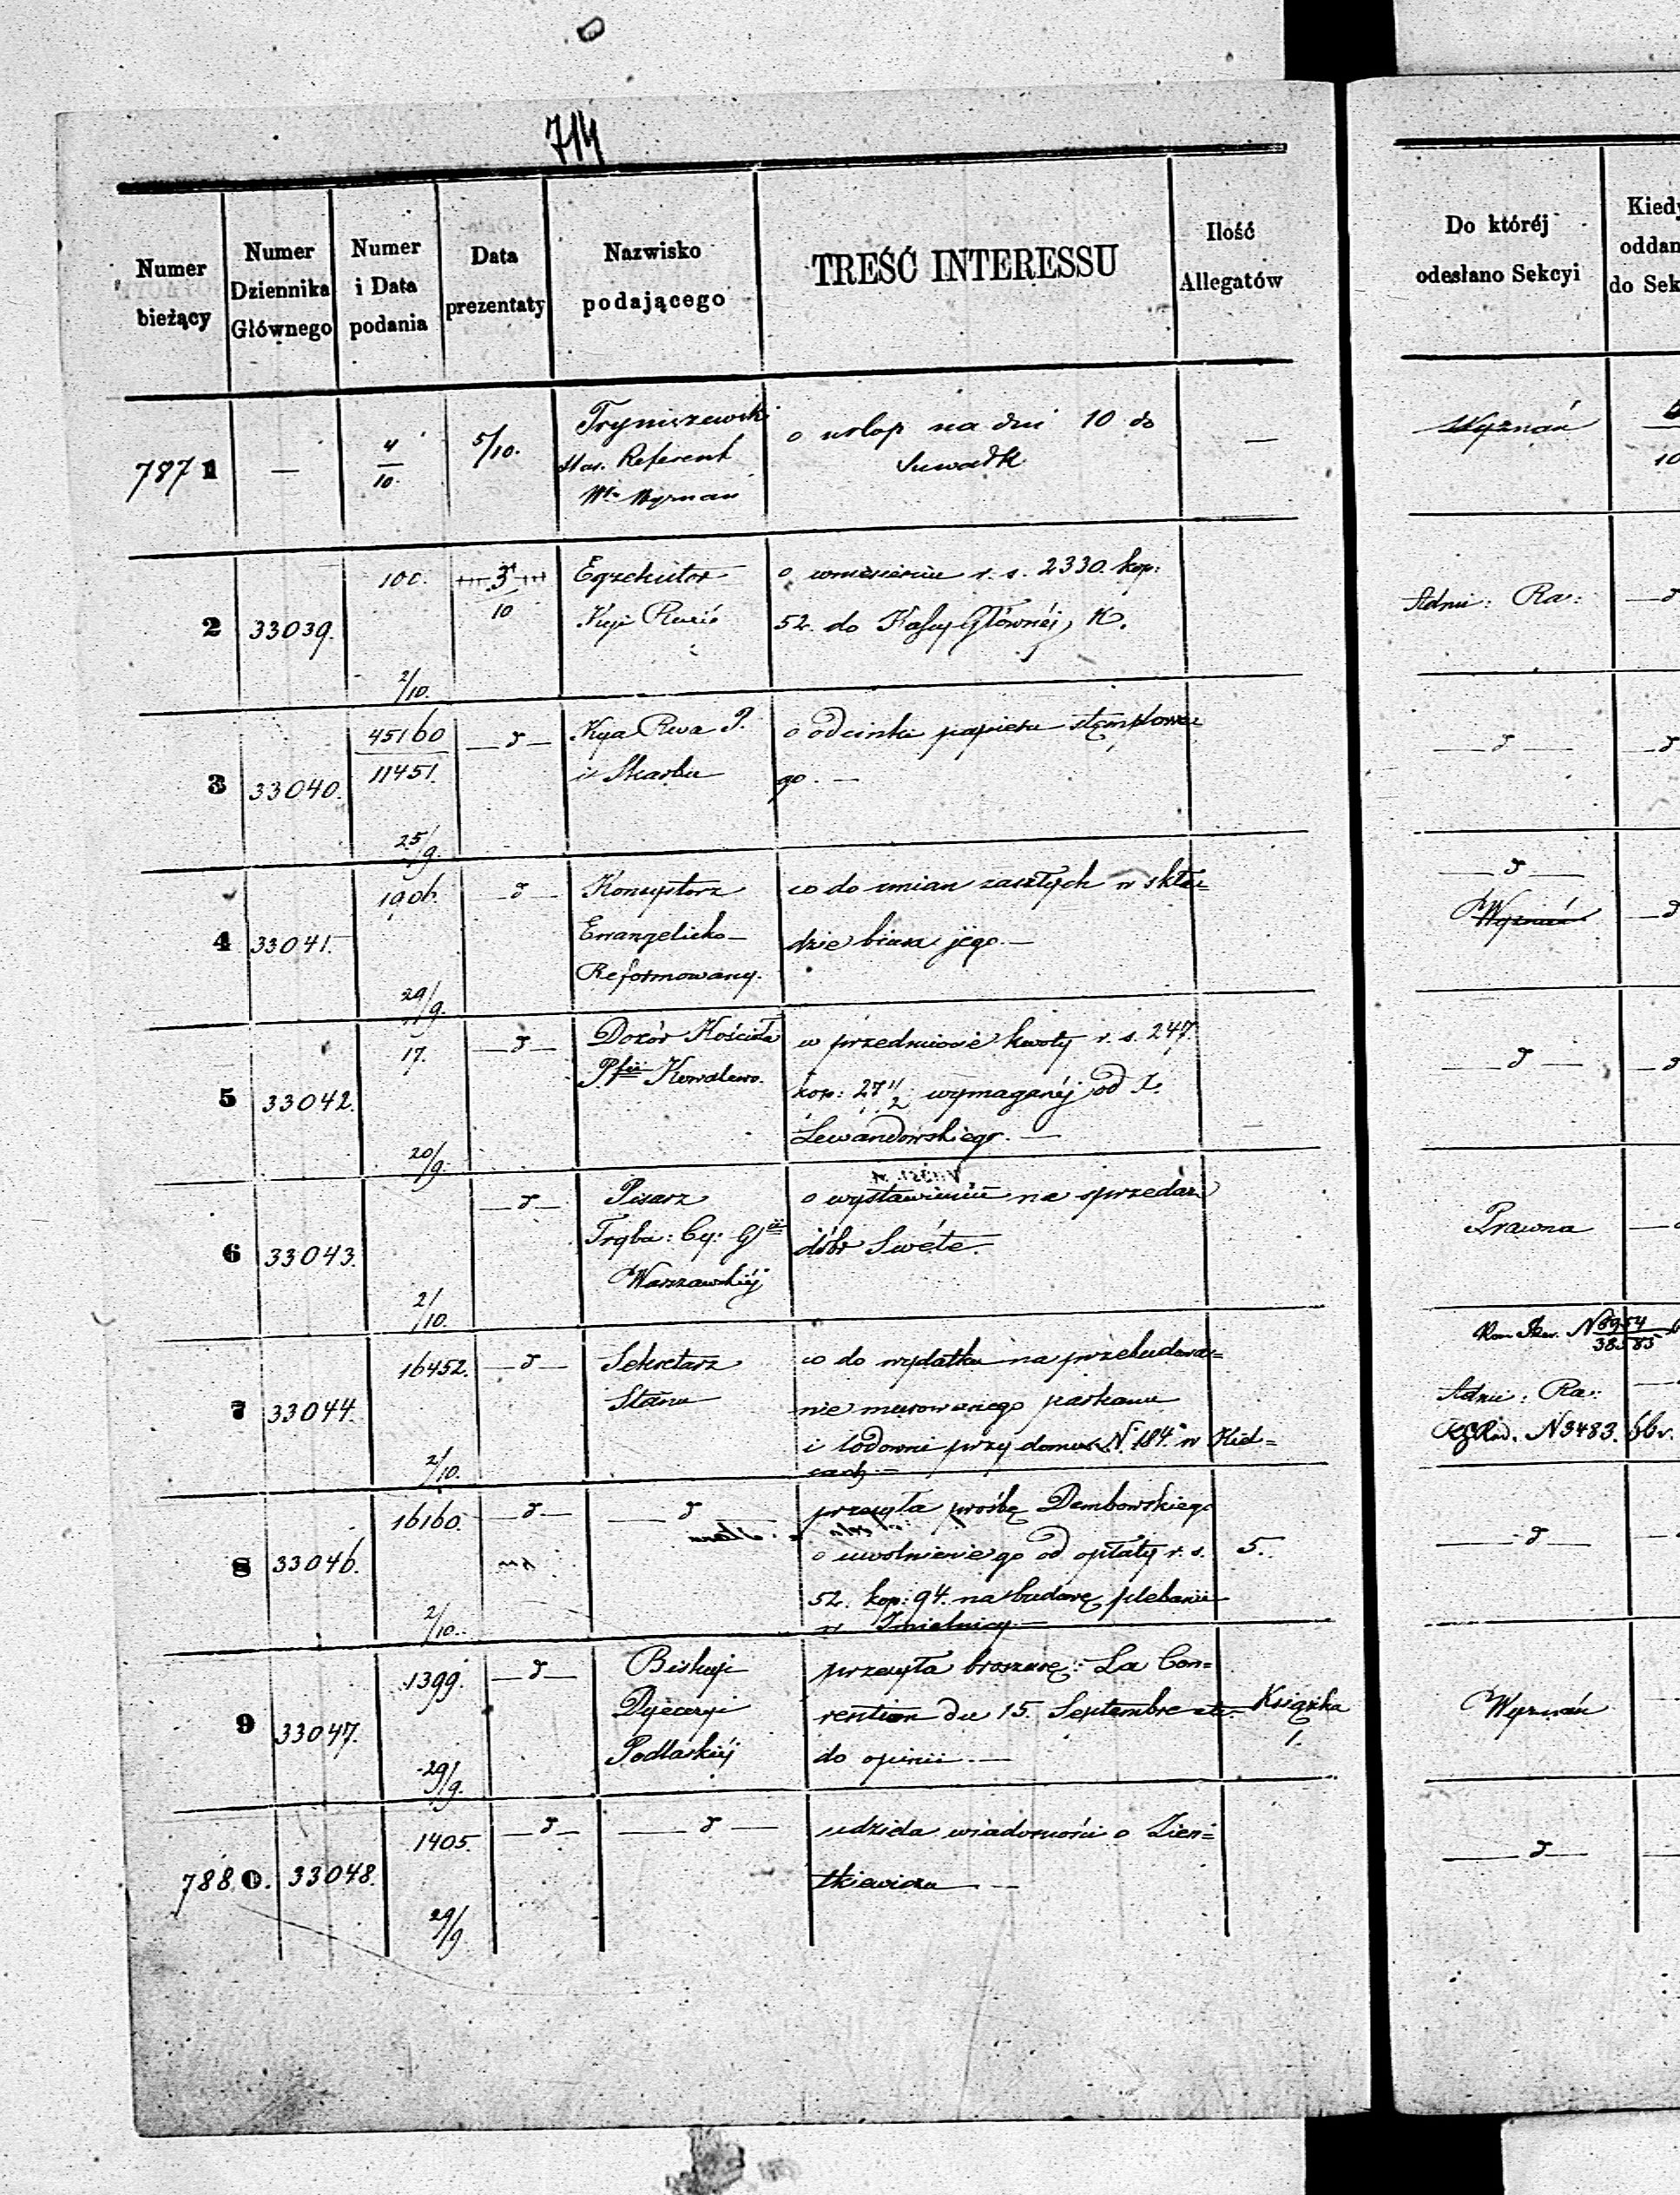 714
Numer bieżący
Numer Dziennika Głównego
Numer i Data podania
Data prezentaty
Nazwisko podającego
TREŚĆ INTERESSU
Ilość Allegatów
Do któréj odesłano Sekcyi
Kiedy
oddan
do Sek
7871
—
4/10.
5/10.
Referent
o urlop na dni 10 do
Suwałk
—
Wyznań
10
2
33039.
100.
2/10.
3/10
Egzekutor
o wniesieniu r. s. 2330. kop:
52. do Kassy Głównéj K.
Admi: Ra:
3
33040.
45160
11451.
25/9.
— d —
Kya Rwa P.
i Skarbu
o odcinki papieru stęmplowe-
go. —
— d —
4
33041.
1906.
29/9.
— d —
Konsystorz
Ewangelicko-
Reformowany.
co do zmian zaszłych w skła=
dzie biura jego. —
— d —
Wyznań
5
33042.
17.
20/9.
— d —
Dozór Kościoła
Pfii Kowalewo.
w przedmiocie kwoty r. s. 247
kop: 27 1/2 wymaganéj od
Lewandowskiego. —
— d —
6
33043.
2/10.
— d —
Pisarz
Tryba: Cy: Gii
Warszawskiéj
o wystawieniu na sprzedaż
dóbr Swéte.
Prawna
7
33044.
16452.
2/10.
— d —
Sekretarz
Stanu
co do wydatku na przebudowa=
nie murowanego parkanu
i lodowni przy domu N. 184. w Kiel=
cach. —
N 6954
38585
Admi: Ra:
N 3483.
8
33046.
16160.
2/10.
— d —
— d —
przesyła prośbę Dembowskiego
o uwolnienie go od opłaty r. s.
52. kop: 94. na budowę plebanii
w Imielnicy. —
5.
— d —
9
33047.
1399.
29/9.
— d —
Biskup
Dyecezyi
Podlaskiéj
przesyła broszurę: La Con=
vention du 15. Septembre etc.
do opinii. —
Książka
1.
Wyznań
7880.
33048.
1405.
29/9
— d —
— d —
udziela wiadomości o Zien=
tkiewiczu —
— d —